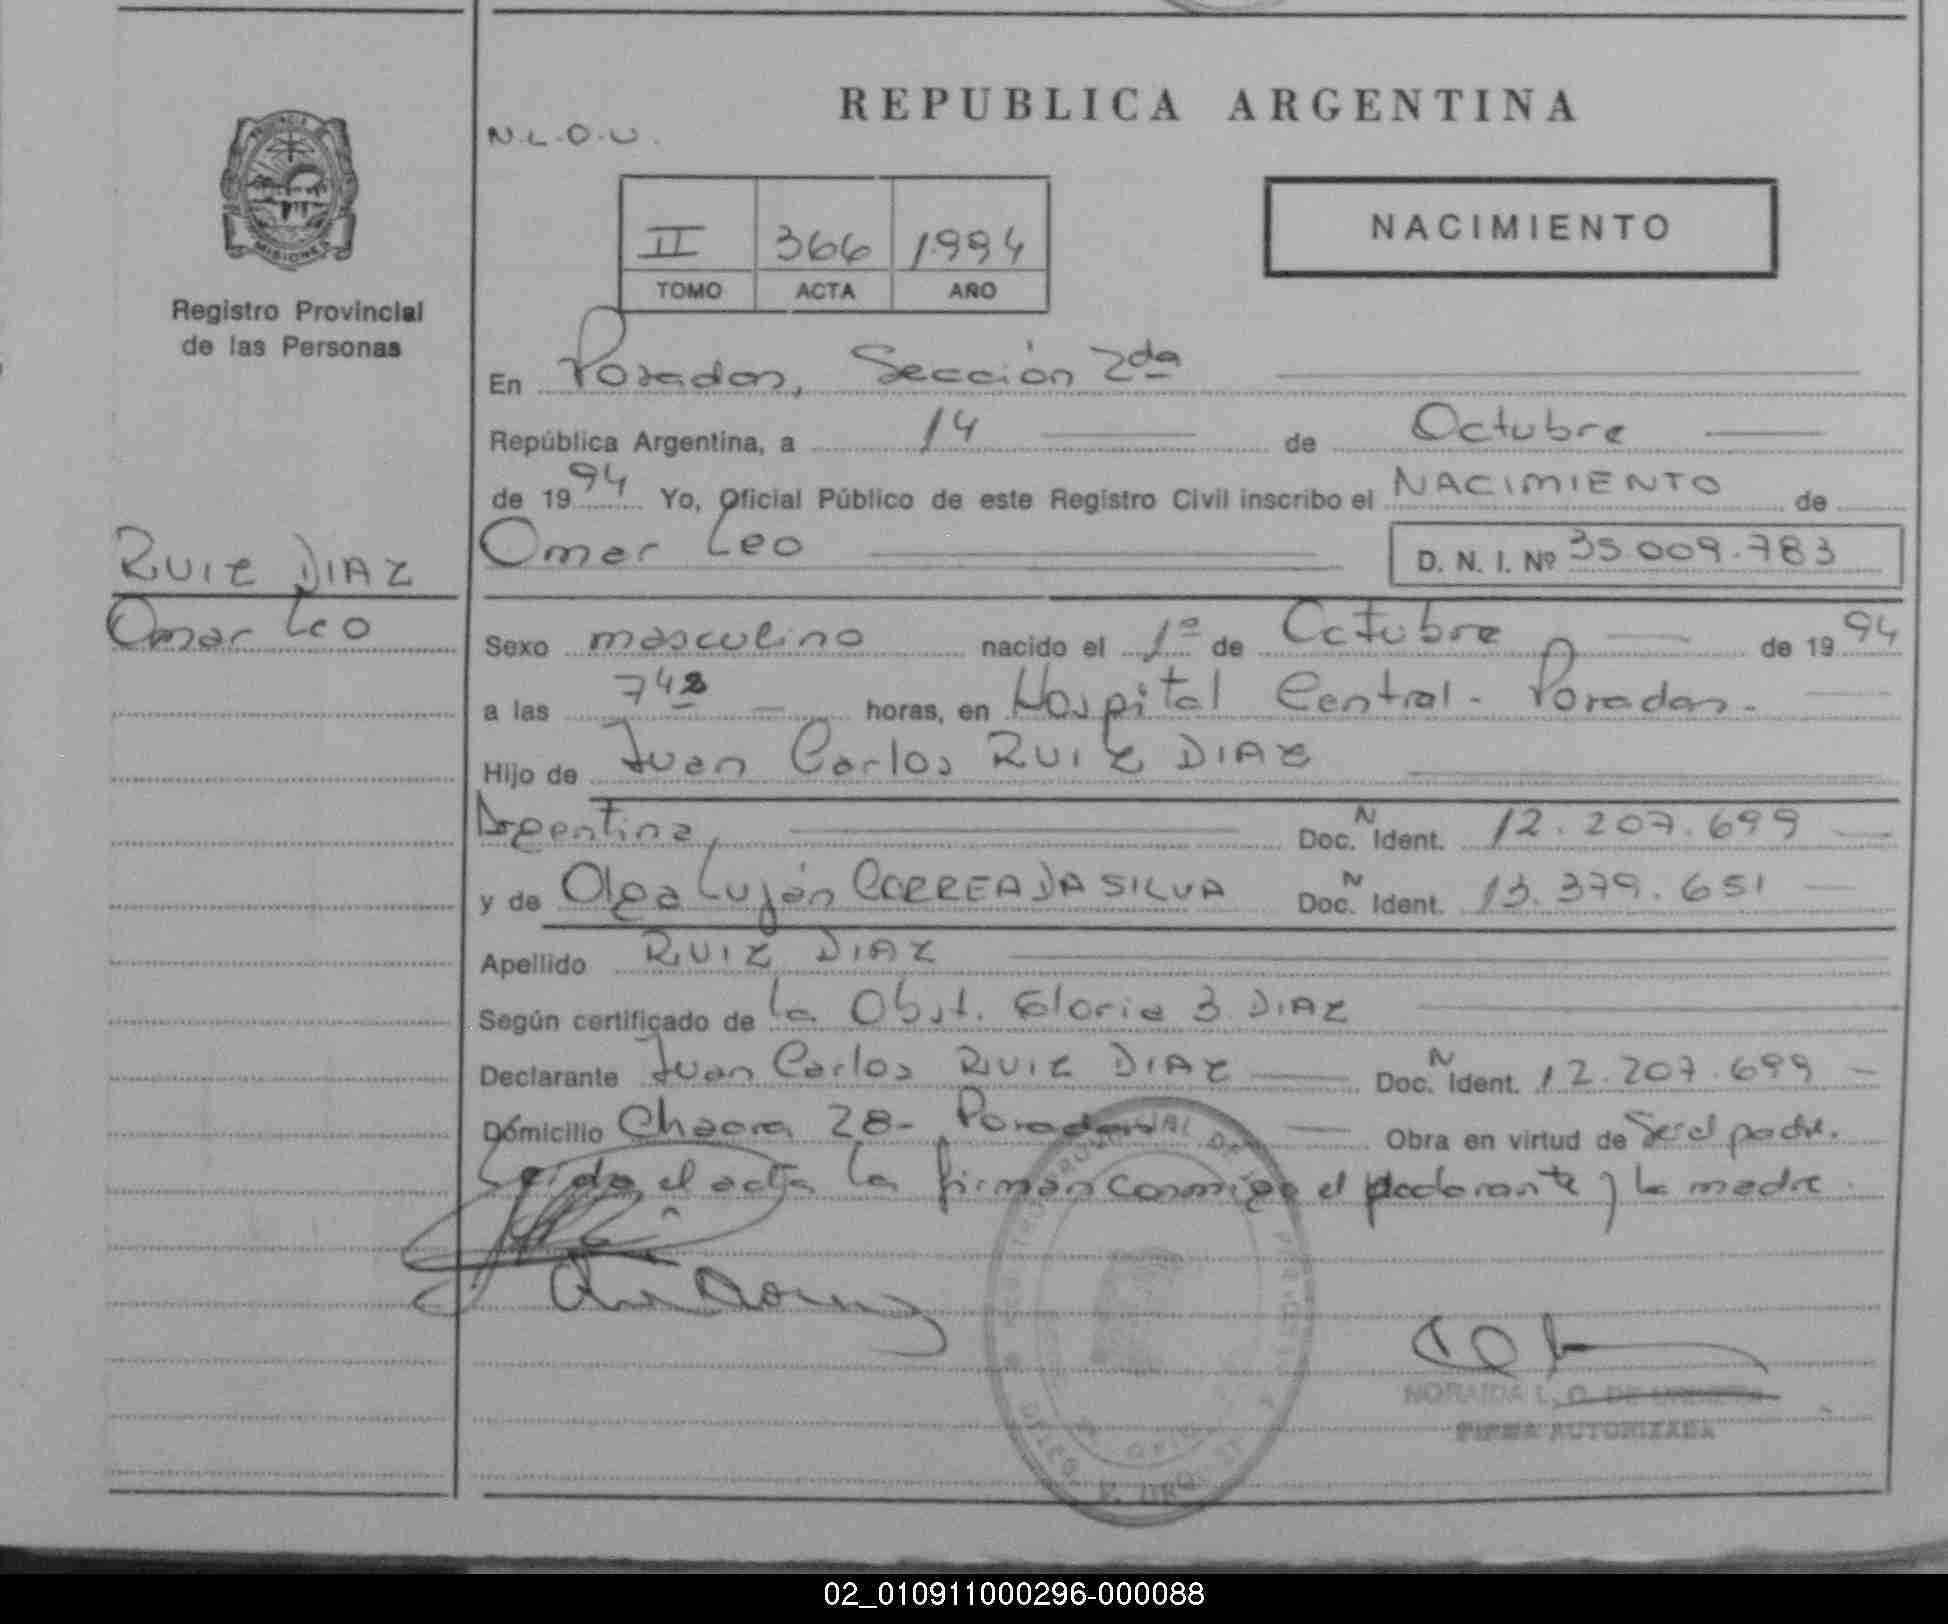 REPUBLICA ARGENTINA
N.L.O.U.
PROVINCIA DE
MISIONES
Registro Provincial
de las Personas
II 366 1994
TOMO ACTA AÑO
NACIMIENTO
En Posadas, Sección 2da
República Argentina, a 14 de Octubre
de 1994 Yo, Oficial Público de este Registro Civil inscribo el NACIMIENTO de
RUIZ DIAZ
Omar Leo
Omar Leo D. N. I. Nº 35.009.783
Sexo masculino nacido el 1º de Octubre de 1994
a las 742 horas, en Hospital Central - Posadas.
Hijo de Juan Carlos RUIZ DIAZ
Argentina, Doc. N Ident. 12.207.699
y de Olga Luján CORREA DA SILVA Doc. N Ident. 13.379.651
Apellido RUIZ DIAZ
Según certificado de la Obst. Gloria B. DIAZ
Declarante Juan Carlos RUIZ DIAZ Doc. N Ident. 12.207.699
Domicilio Chacra 28- Posadas Obra en virtud de Ser el padre.
Leída el acta la firman conmigo el declarante y la madre.
NORAIDA L. O. DE
FIRMA AUTORIZADA
02_010911000296-000088